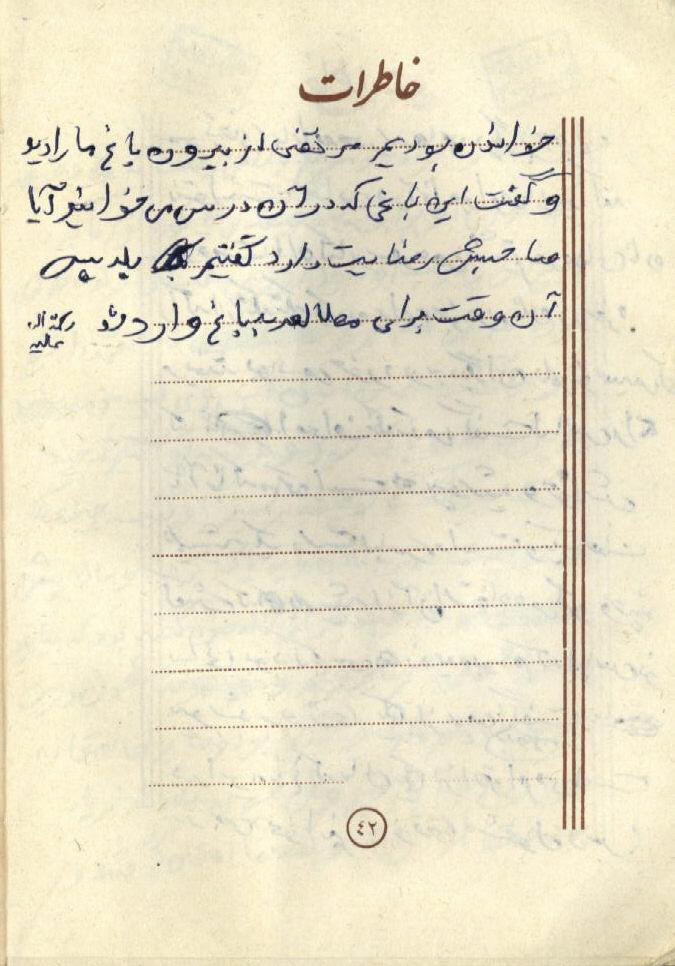 خاطرات
خواندن بودیم مرتضی از بیرون باغ ما را دید
و گفت این باغی که در آن درس می خوانید آیا
صاحبش رضایت دارد گفتیم بله پس
آن وقت برای مطالعه به باغ وارد شد رحمة الله
علیه
٤٢